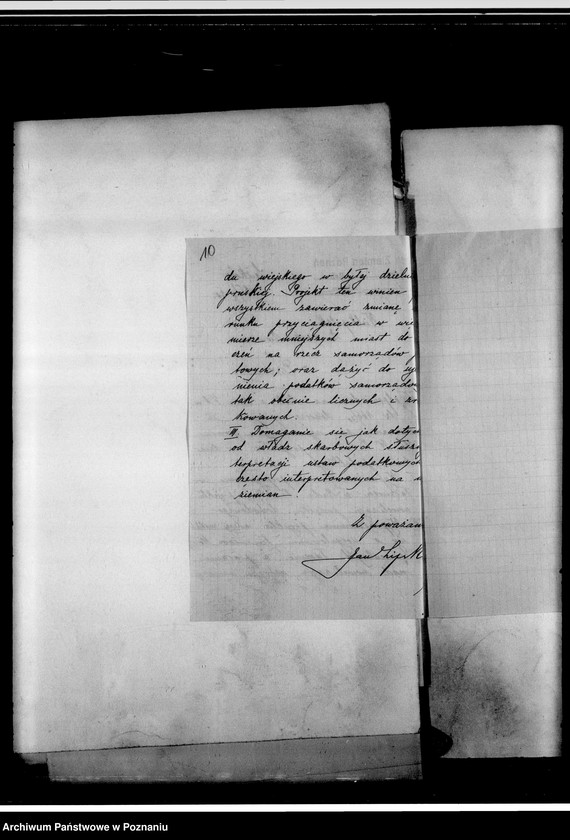 10
du wiejskiego w byłej dzieln
pruskiej. Projekt ten winien
wszystkiem zawierać zmianę
runku przyciągnięcia w
mierze mniejszych miast do
czeń na rzecz samorządów
towych; oraz dążyć do
nienia podatków samorządo
tak obecnie licznych i
kowanych.
III. Domaganie się jak dotyc
od władz skarbowych słusz
terpretacji ustaw podatkowych
często interpretowanych na
ziemian.
Z poważan
Jan Lipsk
Archiwum Państwowe w Poznaniu